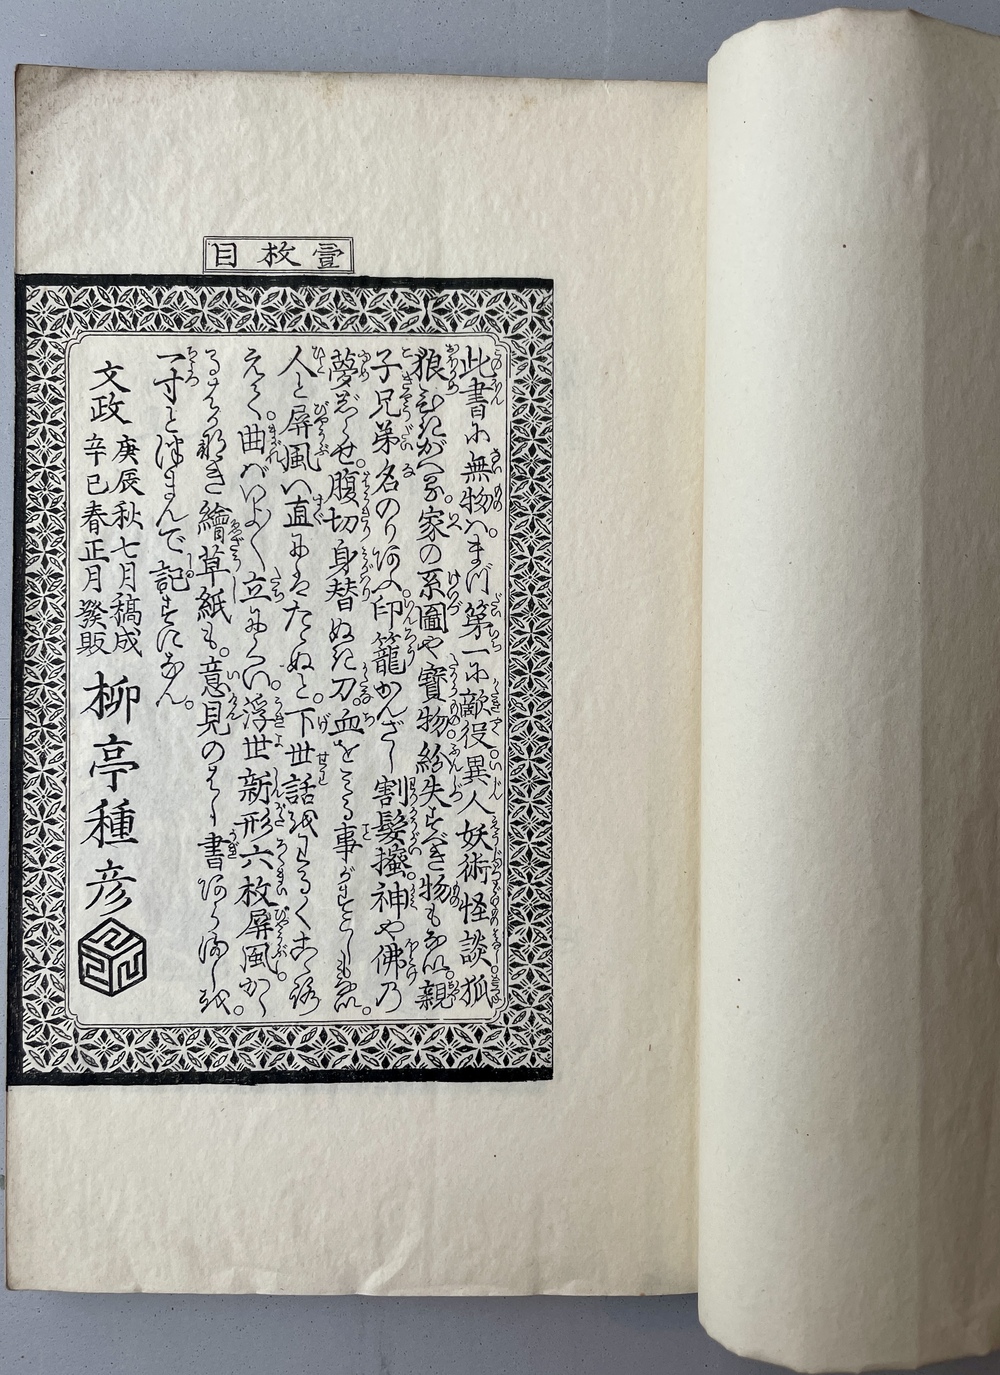 壹枚目
此書に無物ハ。まづ第一に敵役。異人妖術怪談。狐
狼ひきがへる。家の系圖や寶物。紛失すべき物もなし。親
子兄弟名のりあふ。印籠かんざし割髪掻。神や佛乃
夢しらせ。腹切身替ぬき刀。血をみる事がすこしもなし。
人と屏風ハ直にハたゝぬと。下世話をわるくこゝろ
えて。曲ばいよく立にくい。浮世新形六枚屏風。かゝ
るはかなき繪草紙も。意見のはし書あらましを。
一寸とつまんで記すになん。
文政 庚辰秋七月稿成
辛巳春正月發販
柳亭種彦